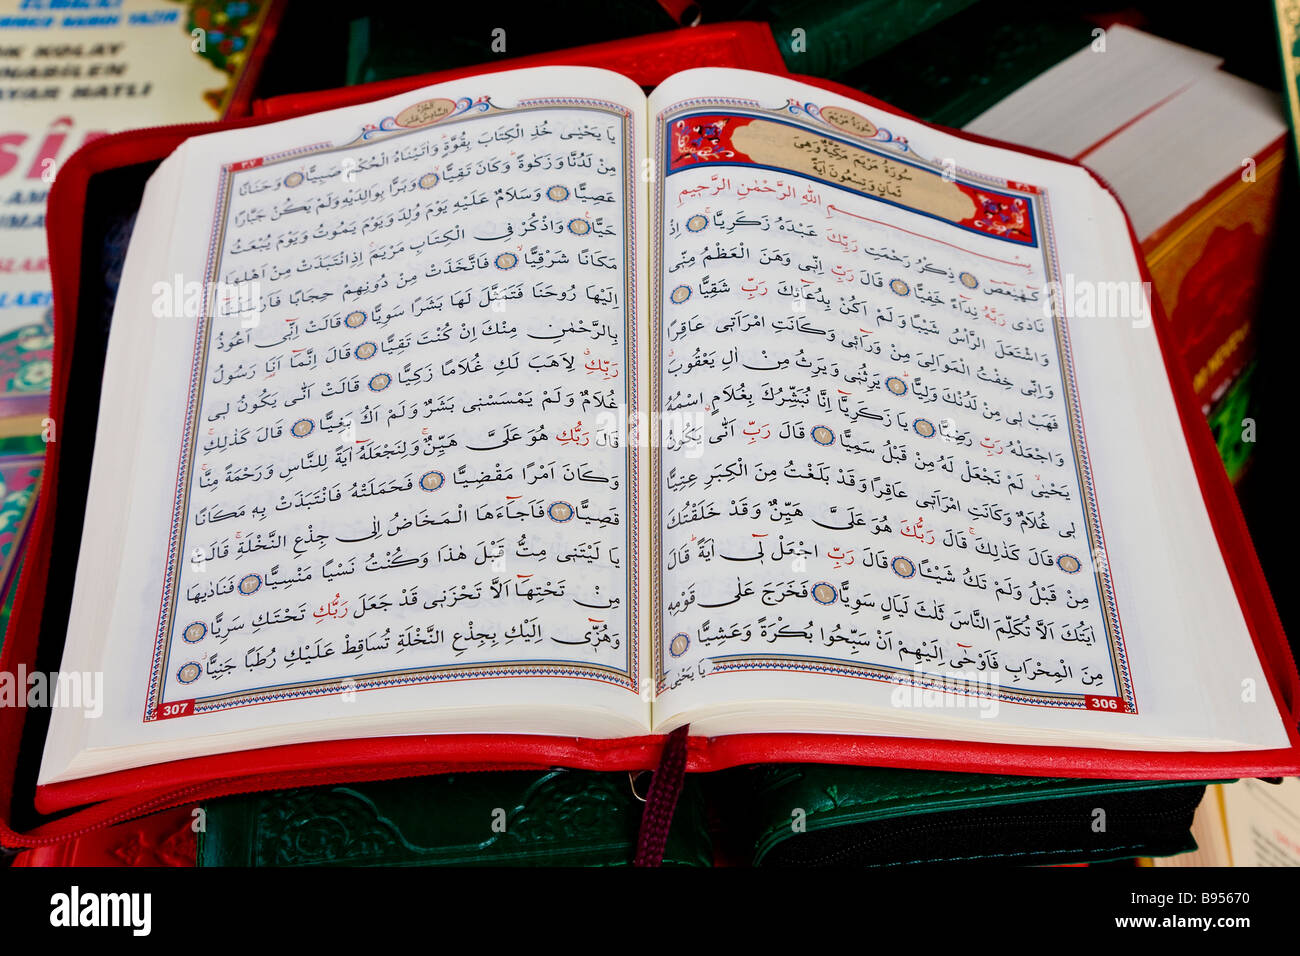 سُورَةُ مَرْيَمَ
سُورَةُ مَرْيَمَ مَكِّيَّةٌ وَهِيَ
ثَمَانٍ وَتِسْعُونَ اٰيَةً
بِسْــــــمِ اللهِ الرَّحْمٰنِ الرَّحِيمِ
كٓهٰيٰعٓصٓ ﴿١﴾ ذِكْرُ رَحْمَتِ رَبِّكَ عَبْدَهُ زَكَرِيَّا ﴿٢﴾ اِذْ
نَادٰى رَبَّهُ نِدَٓاءً خَفِيًّا ﴿٣﴾ قَالَ رَبِّ اِنِّى وَهَنَ الْعَظْمُ مِنِّى
وَاشْتَعَلَ الرَّأْسُ شَيْبًا وَلَمْ اَكُنْ بِدُعَٓائِكَ رَبِّ شَقِيًّا ﴿٤﴾
وَاِنِّى خِفْتُ الْمَوَالِىَ مِنْ وَرَٓائِى وَكَانَتِ امْرَاَتِى عَاقِرًا
فَهَبْ لِى مِنْ لَدُنْكَ وَلِيًّا ﴿٥﴾ يَرِثُنِى وَيَرِثُ مِنْ اٰلِ يَعْقُوبَ
وَاجْعَلْهُ رَبِّ رَضِيًّا ﴿٦﴾ يَا زَكَرِيَّٓا اِنَّا نُبَشِّرُكَ بِغُلَامٍ اسْمُهُ
يَحْيٰى لَمْ نَجْعَلْ لَهُ مِنْ قَبْلُ سَمِيًّا ﴿٧﴾ قَالَ رَبِّ اَنّٰى يَكُونُ
لِى غُلَامٌ وَكَانَتِ امْرَاَتِى عَاقِرًا وَقَدْ بَلَغْتُ مِنَ الْكِبَرِ عِتِيًّا
﴿٨﴾ قَالَ كَذٰلِكَ قَالَ رَبُّكَ هُوَ عَلَىَّ هَيِّنٌ وَقَدْ خَلَقْتُكَ
مِنْ قَبْلُ وَلَمْ تَكُ شَيْئًا ﴿٩﴾ قَالَ رَبِّ اجْعَلْ لِىٓ اٰيَةً قَالَ
اٰيَتُكَ اَلَّا تُكَلِّمَ النَّاسَ ثَلٰثَ لَيَالٍ سَوِيًّا ﴿١٠﴾ فَخَرَجَ عَلٰى قَوْمِهِ
مِنَ الْمِحْرَابِ فَاَوْحٰٓى اِلَيْهِمْ اَنْ سَبِّحُوا بُكْرَةً وَعَشِيًّا ﴿١١﴾
يَا يَحْيٰى
306
الْجُزْءُ السَّادِسُ عَشَرَ
يَا يَحْيٰى خُذِ الْكِتَابَ بِقُوَّةٍ وَاٰتَيْنَاهُ الْحُكْمَ صَبِيًّا ﴿١٢﴾ وَحَنَانًا
مِنْ لَدُنَّا وَزَكٰوةً وَكَانَ تَقِيًّا ﴿١٣﴾ وَبَرًّا بِوَالِدَيْهِ وَلَمْ يَكُنْ جَبَّارًا
عَصِيًّا ﴿١٤﴾ وَسَلَامٌ عَلَيْهِ يَوْمَ وُلِدَ وَيَوْمَ يَمُوتُ وَيَوْمَ يُبْعَثُ
حَيًّا ﴿١٥﴾ وَاذْكُرْ فِى الْكِتَابِ مَرْيَمَ اِذِ انْتَبَذَتْ مِنْ اَهْلِهَا
مَكَانًا شَرْقِيًّا ﴿١٦﴾ فَاتَّخَذَتْ مِنْ دُونِهِمْ حِجَابًا فَاَرْسَلْنَٓا
اِلَيْهَا رُوحَنَا فَتَمَثَّلَ لَهَا بَشَرًا سَوِيًّا ﴿١٧﴾ قَالَتْ اِنِّٓى اَعُوذُ
بِالرَّحْمٰنِ مِنْكَ اِنْ كُنْتَ تَقِيًّا ﴿١٨﴾ قَالَ اِنَّمَٓا اَنَا رَسُولُ
رَبِّكِ لِاَهَبَ لَكِ غُلَامًا زَكِيًّا ﴿١٩﴾ قَالَتْ اَنّٰى يَكُونُ لِى
غُلَامٌ وَلَمْ يَمْسَسْنِى بَشَرٌ وَلَمْ اَكُ بَغِيًّا ﴿٢٠﴾ قَالَ كَذٰلِكِ
قَالَ رَبُّكِ هُوَ عَلَىَّ هَيِّنٌ وَلِنَجْعَلَهُٓ اٰيَةً لِلنَّاسِ وَرَحْمَةً مِنَّا
وَكَانَ اَمْرًا مَقْضِيًّا ﴿٢١﴾ فَحَمَلَتْهُ فَانْتَبَذَتْ بِهِ مَكَانًا
قَصِيًّا ﴿٢٢﴾ فَاَجَٓاءَهَا الْمَخَاضُ اِلٰى جِذْعِ النَّخْلَةِ قَالَتْ
يَا لَيْتَنِى مِتُّ قَبْلَ هٰذَا وَكُنْتُ نَسْيًا مَنْسِيًّا ﴿٢٣﴾ فَنَادٰيهَا
مِنْ تَحْتِهَٓا اَلَّا تَحْزَنِى قَدْ جَعَلَ رَبُّكِ تَحْتَكِ سَرِيًّا ﴿٢٤﴾
وَهُزِّٓى اِلَيْكِ بِجِذْعِ النَّخْلَةِ تُسَاقِطْ عَلَيْكِ رُطَبًا جَنِيًّا ﴿٢٥﴾
307
KOLAY
HATLI
alamy
Image ID: B95670
www.alamy.com